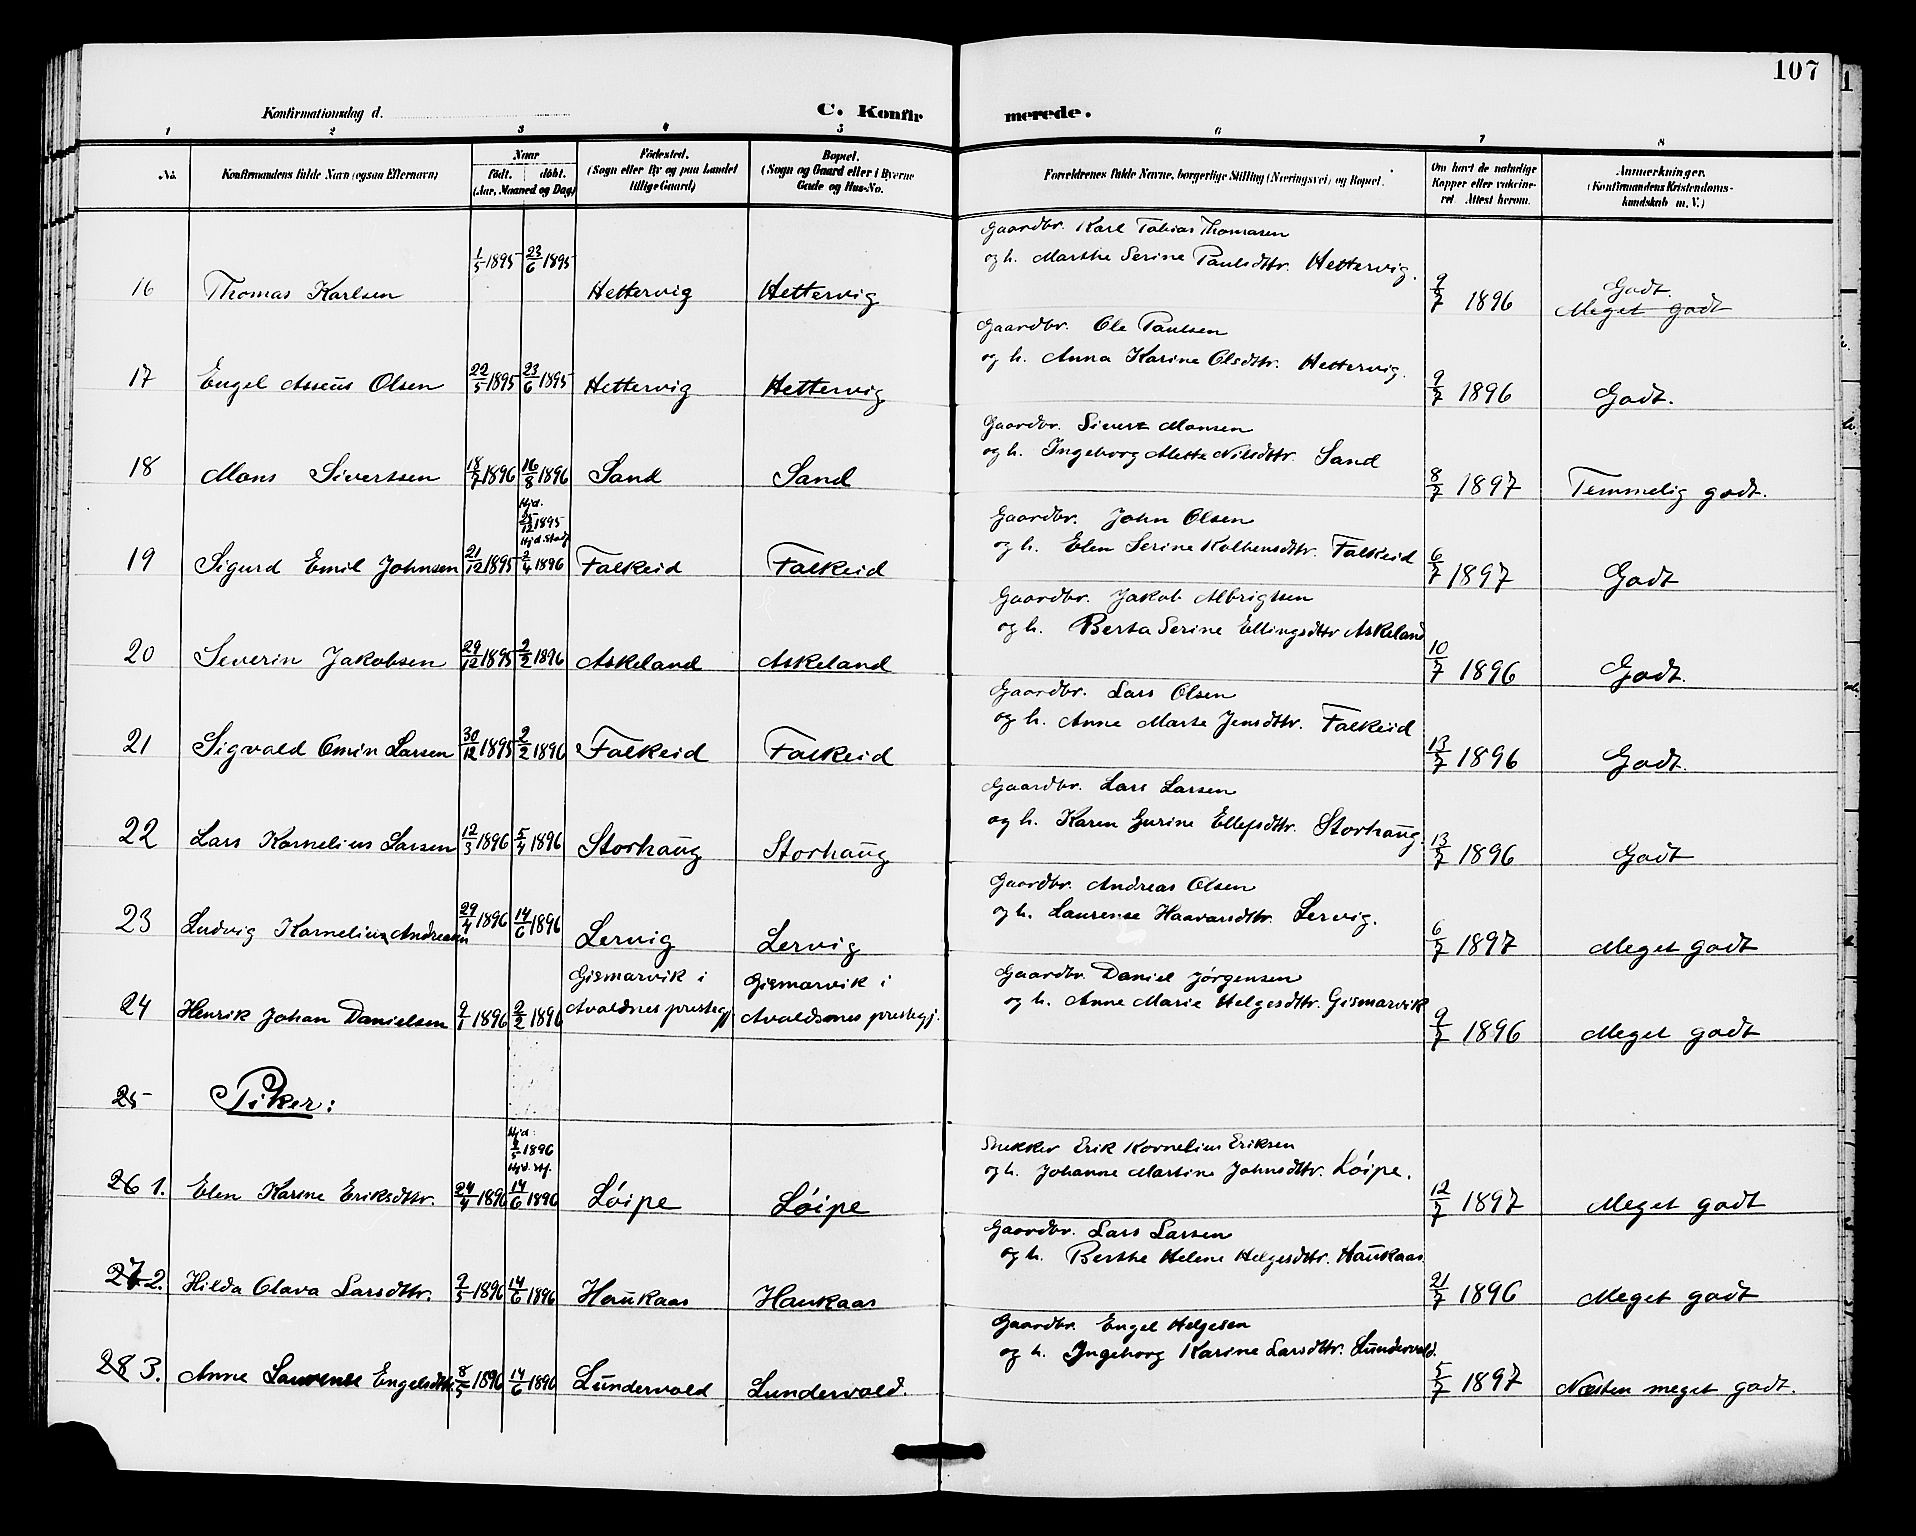 107
Konfirmationsdag d.
C. Konfir
merede.
1 2 3 4 5 6 7 8
No.
Konfirmandens fulde Navn (ogsaa Efternavn)
Naar
født. døbt.
(Aar, Maaned og Dag)
Fødested.
(Sogn eller By og paa Landet
tillige Gaard)
Bopæl.
(Sogn og Gaard eller i Byerne
Gade og Hus-No.
Forældrenes fulde Navne, borgerlige Stilling (Næringsvei) og Bopæl.
Om havt de naturlige
Kopper eller vaksine-
ret Attest herom.
Anmærkninger.
(Konfirmandens Kristendoms-
kundskab m. V.)
Gaardbr. Karl Tobias Thomasen
og h. Marthe Serine Paulsdttr. Hettervig.
16 Thomas Karlsen 1/5 1895 23/6 1895 Hettervig Hettervig 9/7 1896 Godt.
Meget godt
Gaardbr. Ole Paulsen
og h. Anna Karine Olsdttr. Hettervig.
17 Engel Asseus Olsen 22/5 1895 23/6 1895 Hettervig Hettervig 9/7 1896 Godt.
Gaardbr. Sivert Monsen
og h. Ingeborg Mette Nilsdttr. Sand
18 Mons Sivertsen 18/7 1896 16/8 1896 Sand Sand 8/7 1897 Temmelig godt.
Hjd.
25/12 1895
Hjd. Stadf.
Gaardbr. John Olsen
og h. Elen Serine Kolbensdttr. Falkeid
19 Sigurd Emil Johnsen 21/12 1895 2/4 1896 Falkeid Falkeid 6/7 1897 Godt
Gaardbr. Jakob Albrigtsen
og h. Berta Serine Ellingsdttr Askeland
20 Severin Jakobsen 29/12 1895 2/2 1896 Askeland Askeland 10/7 1896 Godt.
Gaardbr. Lars Olsen
og h. Anne Marte Jensdttr. Falkeid
21 Sigvald Omin Larsen 30/12 1895 2/2 1896 Falkeid Falkeid 13/7 1896 Godt.
Gaardbr. Lars Larsen
og h. Karen Gurine Ellefsdttr. Storhaug.
22 Lars Kornelius Larsen 12/3 1896 5/4 1896 Storhaug Storhaug 13/7 1896 Godt
Gaardbr. Andreas Olsen
og h. Laurense Haavarsdttr. Lervig.
23 Ludvig Kornelius Andreassen 29/4 1896 14/6 1896 Lervig Lervig 6/7 1897 Meget godt
Gismarvik i
Gismarvik i
Gaardbr Daniel Jørgensen
og h. Anne Marie Helgesdttr. Gismarvik
24 Henrik Johan Danielsen 9/1 1896 9/2 1896 Avaldnes prestegj Avaldsnes prestegj. 9/7 1896 Meget godt
25 Piker:
Hjd:
1896
Hjd. stf.
Snekker Erik Kornelius Eriksen
og h. Johanne Martine Johnsdttr. Løipe.
26 1. Elen Karine Eriksdttr. 24/4 1896 14/6 1896 Løipe Løipe 12/7 1897 Meget godt
Gaardbr. Lars Larsen
og h. Berthe Helene Helgesdttr. Haukaas
27 2. Hilda Olava Larsdttr. 9/5 1896 14/6 1896 Haukaas Haukaas 21/7 1896 Meget godt
Gaardbr. Engel Helgesen
og h. Ingeborg Karine Larsdttr. Lundervold.
28 3. Anne Laurense Engelsdttr. 8/5 1896 14/6 1896 Lundervold Lundervold. 5/7 1897 Næsten meget godt.